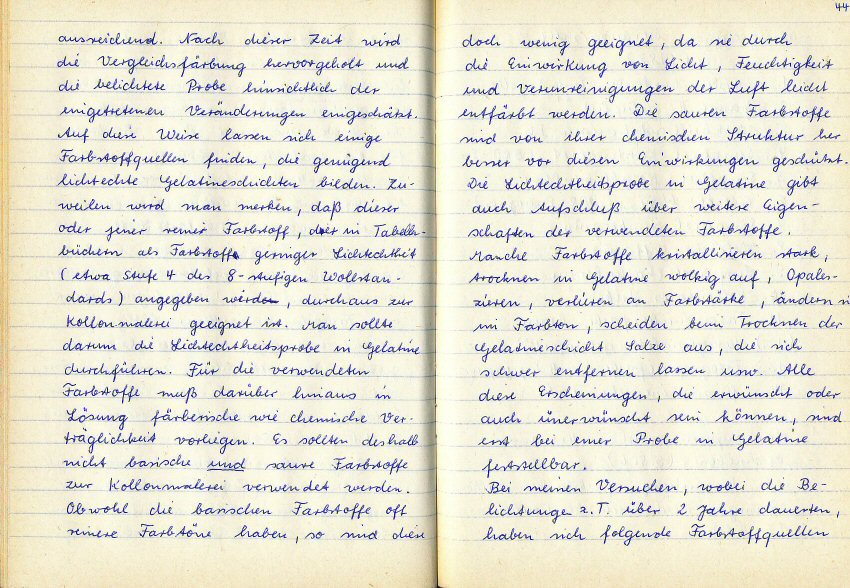 ausreichend. Nach dieser Zeit wird
die Vergleichsfärbung hervorgeholt und
die belichtete Probe hinsichtlich der
eingetretenen Veränderungen eingeschätzt.
Auf diese Weise lassen sich einige
Farbstoffquellen finden, die genügend
lichtechte Gelatineschichten bilden. Zu-
weilen wird man merken, daß dieser
oder jener reiner Farbstoff, der in Tabellen-
büchern als Farbstoff geringer Lichtechtheit
(etwa Stufe 4 des 8-stufigen Wollstan-
dards) angegeben wird, durchaus zur
Kollonmalerei geeignet ist. Man sollte
darum die Lichtechtheitsprobe in Gelatine
durchführen. Für die verwendeten
Farbstoffe muß darüber hinaus in
Lösung färberische wie chemische Ver-
träglichkeit vorliegen. Es sollten deshalb
nicht basische und saure Farbstoffe
zur Kollonmalerei verwendet werden.
Obwohl die basischen Farbstoffe oft
reinere Farbtöne haben, so sind diese
44
doch wenig geeignet, da sie durch
die Einwirkung von Licht, Feuchtigkeit
und Verunreinigungen der Luft leicht
entfärbt werden. Die sauren Farbstoffe
sind von ihrer chemischen Struktur her
besser vor diesen Einwirkungen geschützt.
Die Lichtechtheitsprobe in Gelatine gibt
auch Aufschluß über weitere Eigen-
schaften der verwendeten Farbstoffe.
Manche Farbstoffe kristallisieren stark,
trocknen in Gelatine wolkig auf, Opales-
zieren, verlieren an Farbstärke, ändern si
im Farbton, scheiden beim Trocknen der
Gelatineschicht Salze aus, die sich
schwer entfernen lassen usw. Alle
diese Erscheinungen, die erwünscht oder
auch unerwünscht sein können, sind
erst bei einer Probe in Gelatine
feststellbar.
Bei meinen Versuchen, wobei die Be-
lichtungen z.T. über 2 Jahre dauerten,
haben sich folgende Farbstoffquellen